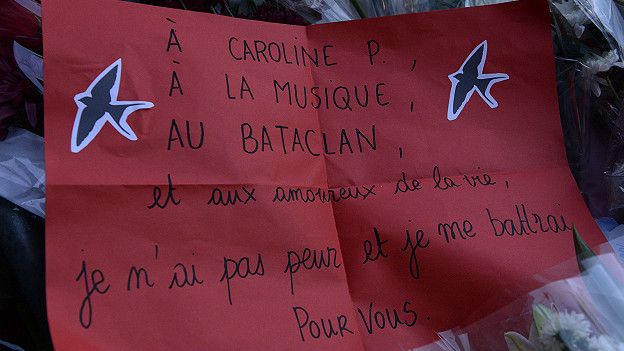 À CAROLINE P.,
À LA MUSIQUE,
AU BATACLAN,
et aux amoureux de la vie,
je n'ai pas peur et je me battrai
POUR VOUS.